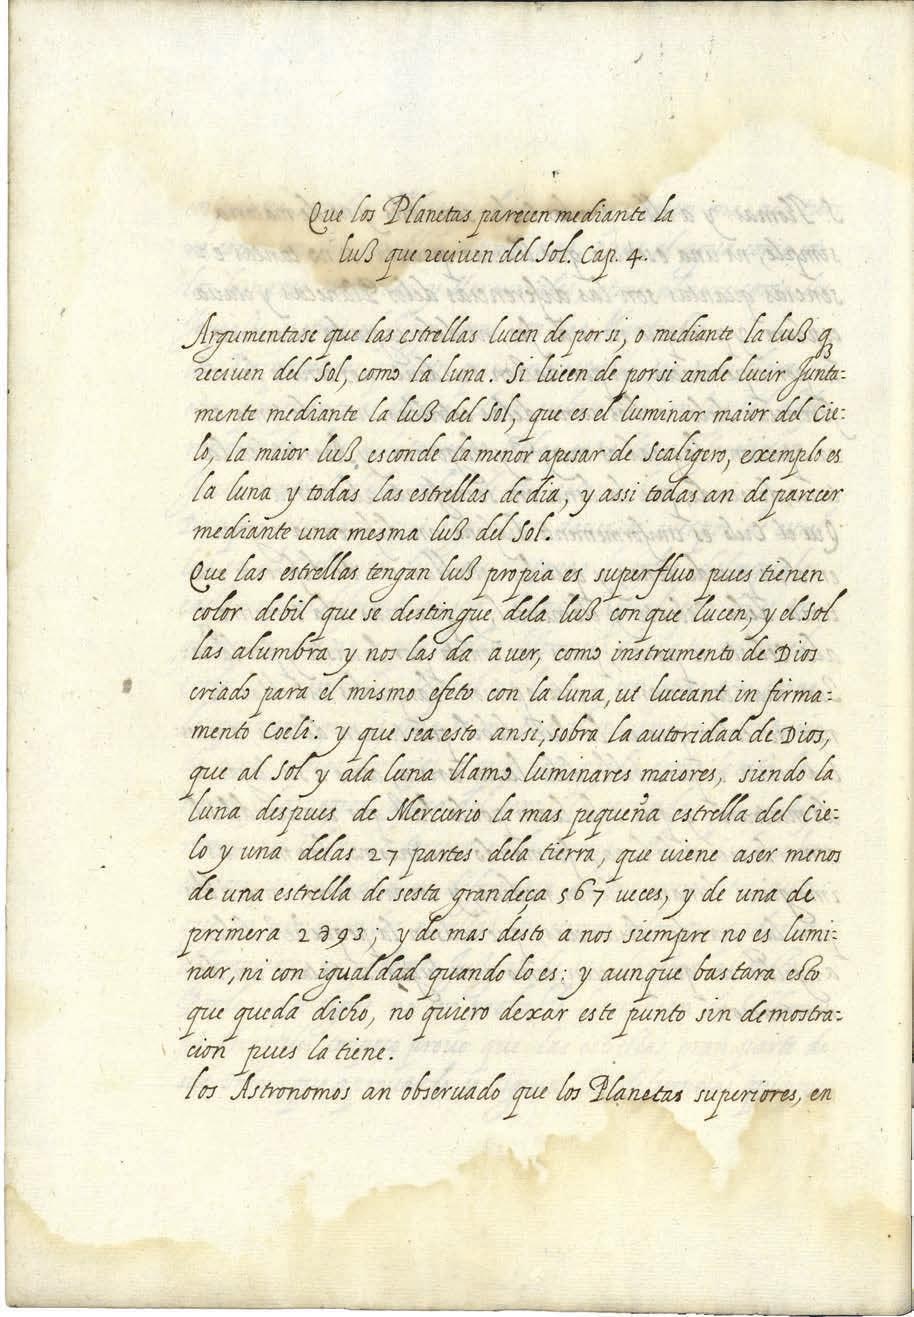 Que los Planetas parecen mediante la
luß que reciven del Sol. Cap. 4.
Argumentase que las estrellas lucen de por si, o mediante la luß q̃
reciven del Sol, como la luna. Si lucen de por si an de lucir Junta:
mente mediante la luß del Sol, que es el luminar maior del Cie:
lo, la maior luß esconde la menor apesar de Scaligero, exemplo es
la luna y todas las estrellas de dia, y assi todas an de parecer
mediante una mesma luß del Sol.
Que las estrellas tengan luß propia es superfluo pues tienen
color debil que se destingue dela luß con que lucen, y el Sol
las alumbra y nos las da a ver, como instrumento de Dios
criado para el mismo efeto con la luna, ut luceant in firma:
mento Coeli. y que sea esto ansi, sobra la autoridad de Dios,
que al Sol y ala luna llamo luminares maiores, siendo la
luna despues de Mercurio la mas pequeña estrella del Cie:
lo y una delas 27 partes dela tierra, que uiene a ser menos
de una estrella de sesta grandeça 567 ueces, y de una de
primera 2893; y de mas desto a nos siempre no es lumi:
nar, ni con igualdad quando lo es: y aunque bastara esto
que queda dicho, no quiero dexar este punto sin demostra:
cion pues la tiene.
los Astronomos an obseruado que los Planetas superiores, en